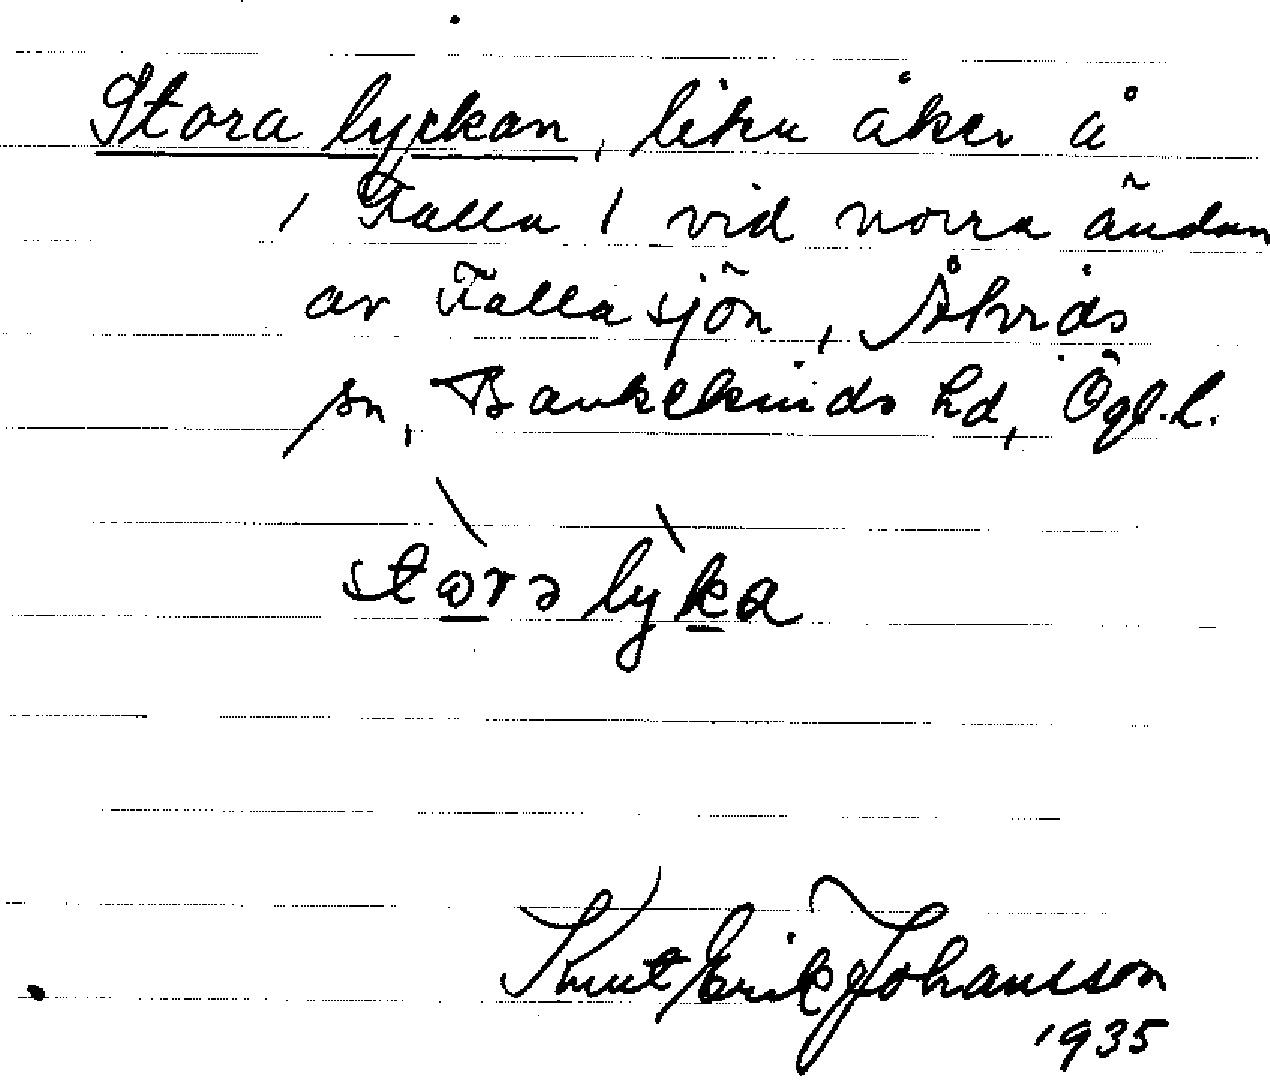 Stora lyckan, liten åker å
/ Falla / vid norra ändan
av Fallasjön, Åtvids
sn, Bankekinds hd, Ögl. l.
Knut Erik Johansson
1935